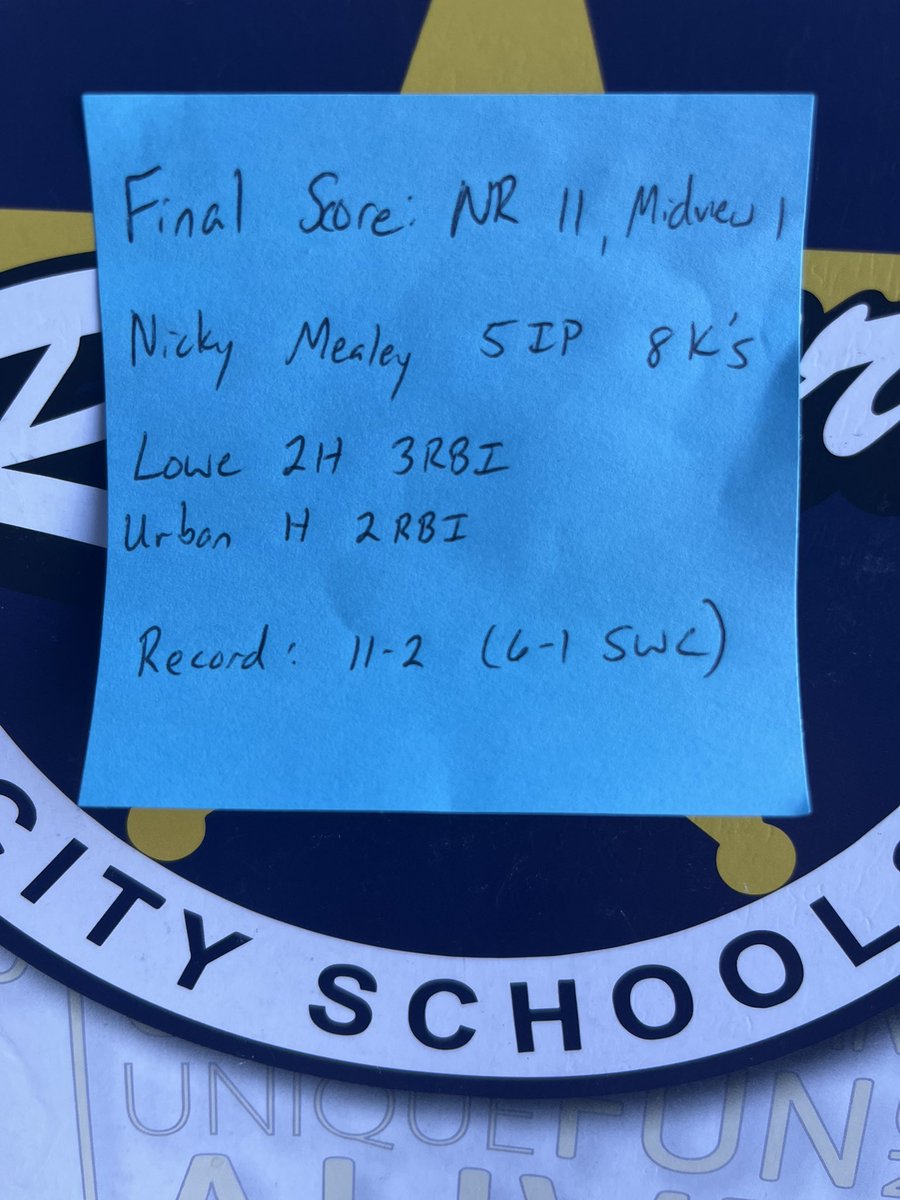 Final Score: NR 11, Midview 1
Nicky Mealey 5IP 8K's
Lowe 2H 3RBI
Urban H 2RBI
Record: 11-2 (6-1 SWC)
CITY SCHOOL
UNIQUE FUN